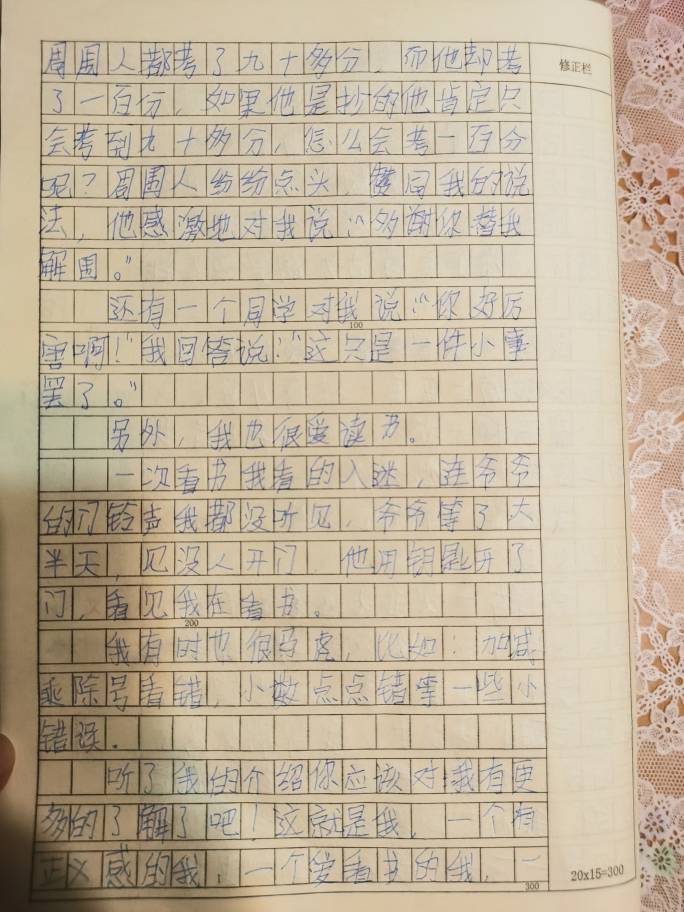 周围人都考了九十多分，而他却考
修正栏
了一百分，如果他是抄的他肯定只
会考到九十多分，怎么会考一百分
呢？周围人纷纷点头，赞同我的说
法，他感激地对我说：“多谢你替我
解围。”
还有一个同学对我说：“你好厉
100
害啊！”我回答说：“这只是一件小事
罢了。”
另外，我也很爱读书。
一次看书我看的入迷，连爷爷
的门铃声我都没听见，爷爷等了大
半天，见没人开门，他用钥匙开了
门，看见我在看书。
200
我有时也很马虎，比如：加减
乘除号看错，小数点点错等一些小
错误。
听了我的介绍你应该对我有更
多的了解了吧！这就是我，一个有
正义感的我，一个爱看书的我，一
300
20x15=300